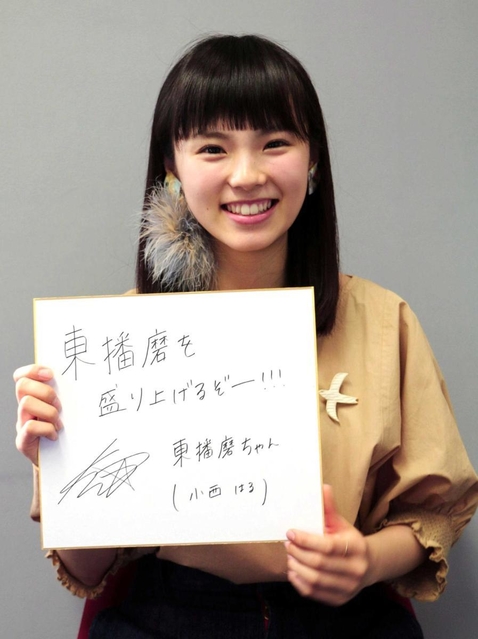 東播磨を
盛り上げるぞー!!!
東播磨ちゃん
(小西 はる)